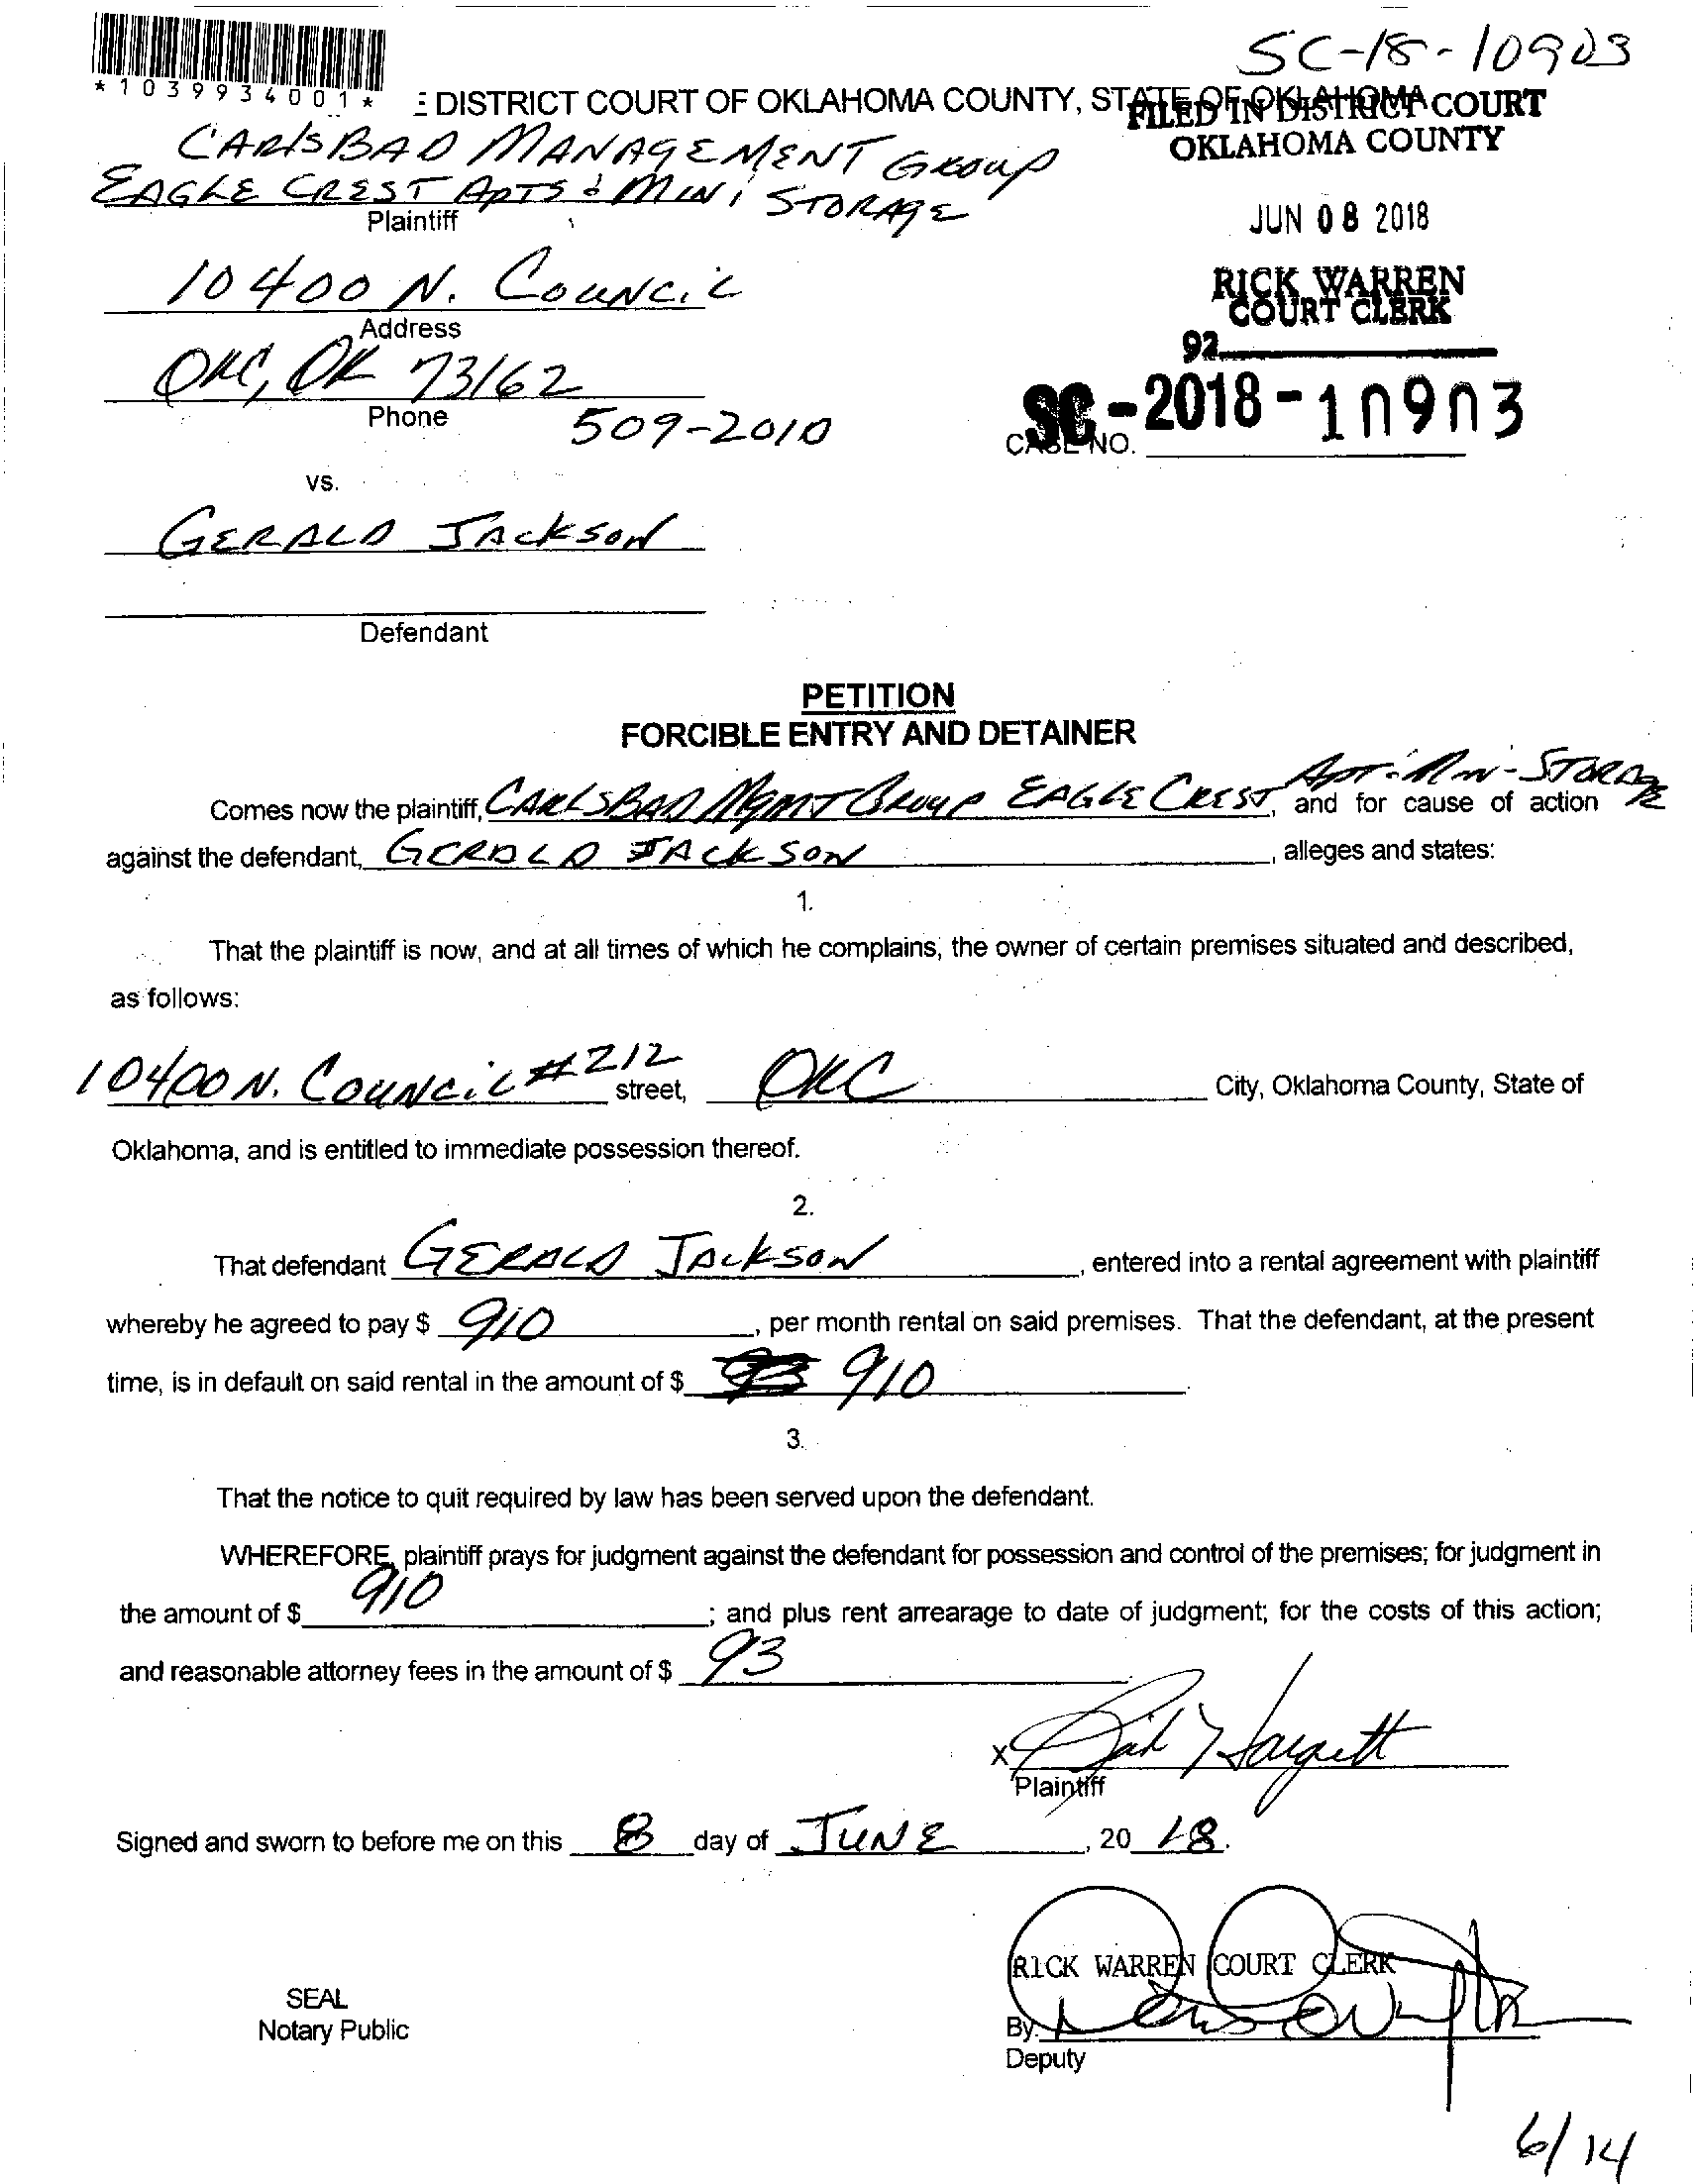 SC-18-10903
*1039934001*
E DISTRICT COURT OF OKLAHOMA COUNTY, STATE OF OKLAHOMA
FILED IN DISTRICT COURT
OKLAHOMA COUNTY
CARLSBAD MANAGEMENT GROUP
EAGLE CREST APTS & MINI STORAGE
Plaintiff
JUN 08 2018
10400 N. COUNCIL
Address
RICK WARREN
COURT CLERK
92
OKC, OK 73162
Phone
509-2010
SC-2018-10903
CASE NO.
vs.
GERALD JACKSON
Defendant
PETITION
FORCIBLE ENTRY AND DETAINER
Comes now the plaintiff, CARLSBAD MGMT GROUP EAGLE CREST, APT-MINI-STORAGE and for cause of action
against the defendant, GERALD JACKSON, alleges and states:
1.
That the plaintiff is now, and at all times of which he complains, the owner of certain premises situated and described,
as follows:
10400 N. COUNCIL #212 street, OKC City, Oklahoma County, State of
Oklahoma, and is entitled to immediate possession thereof.
2.
That defendant GERALD JACKSON, entered into a rental agreement with plaintiff
whereby he agreed to pay $ 910, per month rental on said premises. That the defendant, at the present
time, is in default on said rental in the amount of $ 910.
3.
That the notice to quit required by law has been served upon the defendant.
WHEREFORE, plaintiff prays for judgment against the defendant for possession and control of the premises; for judgment in
the amount of $ 910; and plus rent arrearage to date of judgment; for the costs of this action;
and reasonable attorney fees in the amount of $ 93.
X Hargett
Plaintiff
Signed and sworn to before me on this 8 day of JUNE, 20 18.
RICK WARREN COURT CLERK
SEAL
Notary Public
By:
Deputy
6/14